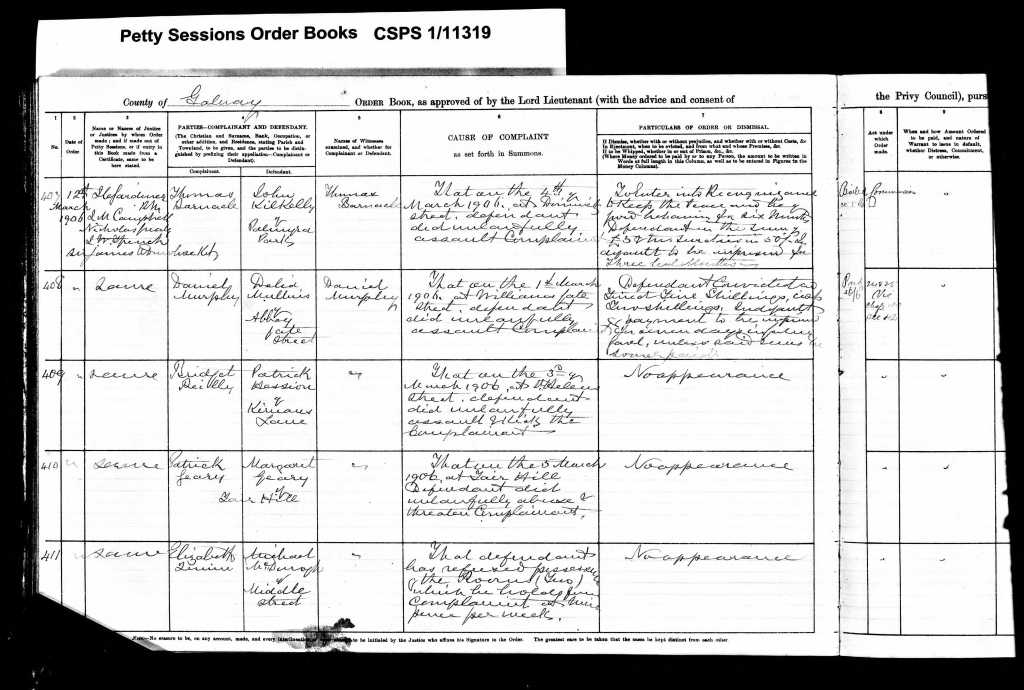 Petty Sessions Order Books CSPS 1/11319
County of Galway
ORDER BOOK, as approved of by the Lord Lieutenant (with the advice and consent of
the Privy Council), purs
1 2 3 4 5 6 7 8 9
No.
Date of
Order
Name or Names of Justice
or Justices by whom Order
made; and if made out of
Petty Sessions, or if entry in
this Book made from a
Certificate, same to be
here stated.
PARTIES—COMPLAINANT AND DEFENDANT.
(The Christian and Surname, Rank, Occupation, or
other addition, and Residence, stating Parish and
Townland, to be given, and the parties to be distin-
guished by prefixing their appellation—Complainant or
Defendant.
Complainant.
Defendant.
Names of Witnesses
examined, and whether for
Complainant or Defendant.
CAUSE OF COMPLAINT
as set forth in Summons.
PARTICULARS OF ORDER OR DISMISSAL.
If Dismiss, whether with or without prejudice, and whether with or without Costs, &c.
Act under
which
Order
made.
When and how Amount Ordered
to be paid, and nature of
Warrant to issue in default,
whether Distress, Commitment,
or otherwise.
407
12th
March
1906
J M Campbell
Thomas
Barnacle
John
Kilkelly
of
Palmyra
Park
Thomas
Barnacle
That on the 4th of
March 1906, at Dominick
street, defendant
did unlawfully
assault Complain
To enter into Recognizance
to keep the peace and be of
good behaviour for six Months
Defendant in the sum of
Three Cal Months
408
"
Same
Daniel
Murphy
David
Mullins
of
Abbey
gate
street
Daniel
Murphy
That on the 1st March
1906, at Williams gate
street, defendant
did unlawfully
assault Complain
Defendant Convicted and
fined Five Shillings, costs
Two shillings, Indefault
of payment to be imprisd
gaol, unless said sums be
sooner paid
409
"
Same
Bridget
Reilly
Patrick
Hession
of
Kirwans
Lane
"
That on the 3rd of
March 1906, at St Helens
Street, defendant
did unlawfully
assault & kick the
Complainant
No appearance
"
"
410
"
Same
Patrick
Geary
Margaret
Geary
of
Fair Hill
"
That on the 5 March
1906, at Fair Hill
Defendant did
unlawfully abuse &
threaten Complainant.
No appearance
"
"
411
"
Same
Elizabeth
Quinn
Michael
McDonogh
of
Middle
street
"
That defendant
has refused possession
of the Room (Two)
which he holds from
Complainant at Nine
pence per week.
No appearance
"
"
NOTE—No erasure to be, on any account, made, and every to be initialed by the Justice who affixes his Signature to the Order. The greatest care to be taken that the cases be kept distinct from each other